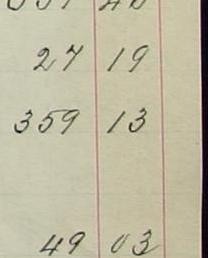 27 19
359 13
49 03